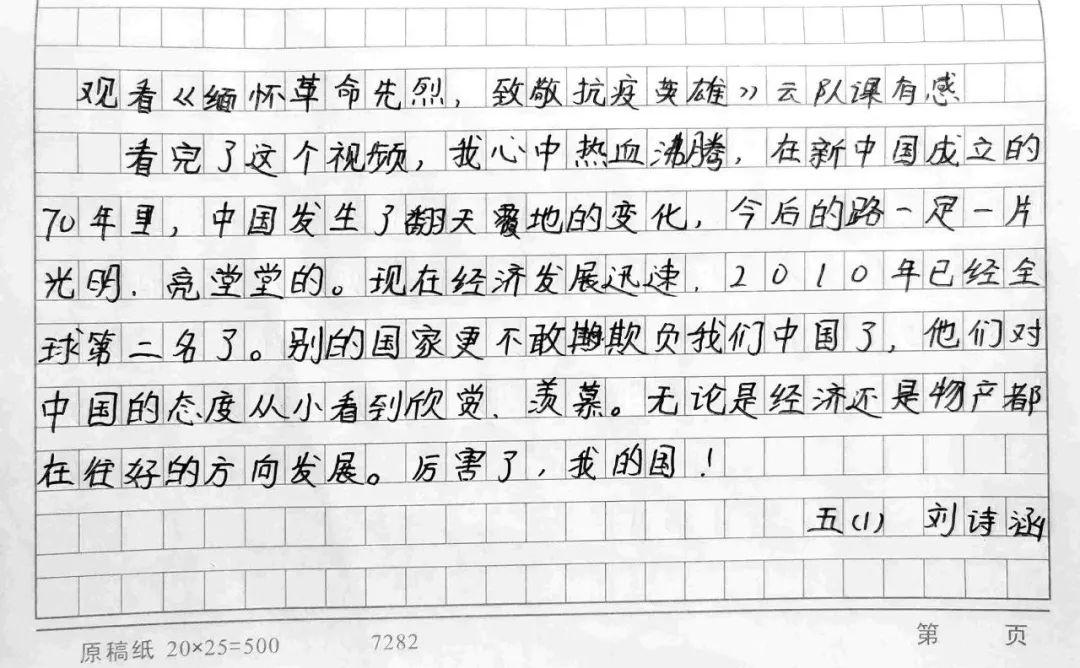 观看《缅怀革命先烈，致敬抗疫英雄》云队课有感
看完了这个视频，我心中热血沸腾，在新中国成立的
70年里，中国发生了翻天覆地的变化，今后的路一定一片
光明、亮堂堂的。现在经济发展迅速，2010年已经全
球第二名了。别的国家更不敢欺负我们中国了，他们对
中国的态度从小看到欣赏、羡慕。无论是经济还是物产都
在往好的方向发展。厉害了，我的国！
五(1) 刘诗涵
原稿纸 20×25=500 7282 第 页